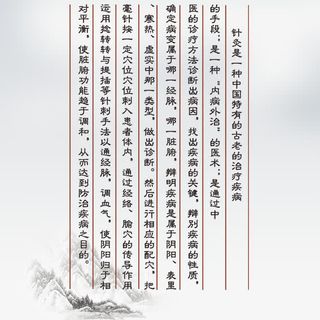 针灸是一种中国特有的古老的治疗疾病
的手段；是一种“内病外治”的医术；是通过中
医的诊疗方法诊断出病因，找出疾病的关键，辨别疾病的性质，
确定病变属于哪一经脉，哪一脏腑，辨明疾病是属于阴阳、表里
、寒热、虚实中那一类型，做出诊断。然后进行相应的配穴，把
毫针按一定穴位穴位刺入患者体内，通过经络、腧穴的传导作用
运用捻转转与提插等针刺手法以通经脉，调血气，使阴阳归于相
对平衡，使脏腑功能趋于调和，从而达到防治疾病之目的。